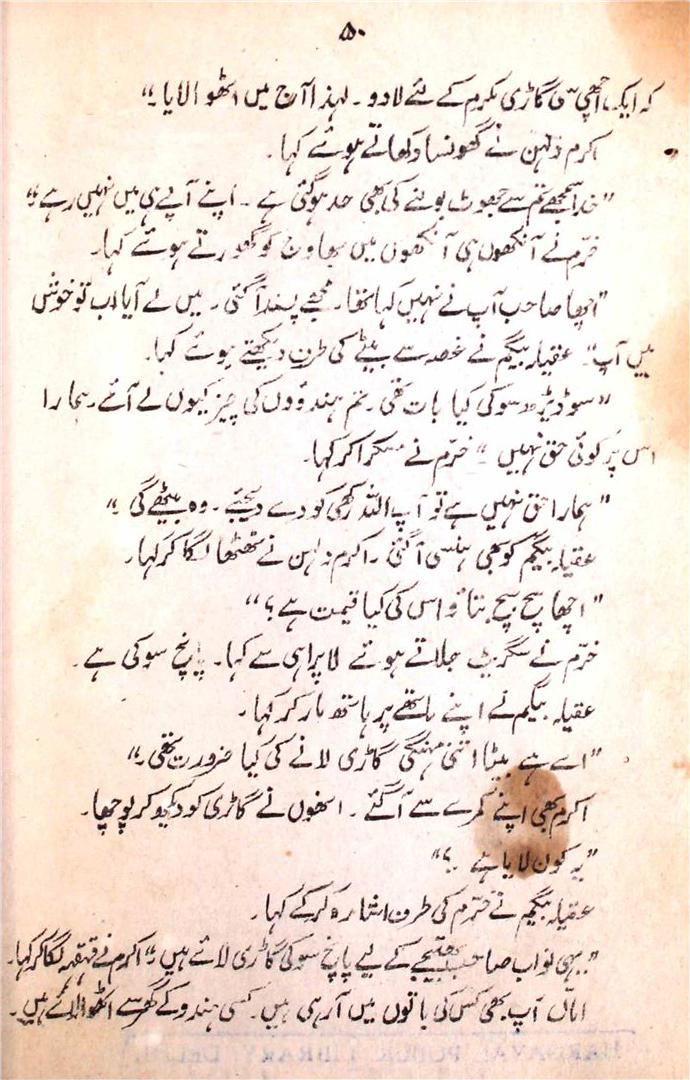 ۵۰
کہ ایک اچھی سی گاڑی مکرم کے لئے لادو۔ لہذا آج میں اٹھوا لایا۔"
اکرم دلہن نے گھونسا دکھاتے ہوئے کہا۔
"خدا سمجھے تم سے جھوٹ بولنے کی بھی حد ہوگئی ہے۔ اپنے آپے ہی میں نہیں رہے۔"
خرّم نے آنکھوں ہی آنکھوں میں بھاوج کو گھورتے ہوئے کہا۔
"اچھا صاحب آپ نے نہیں کہا تھا۔ مجھے پسند آگئی۔ میں لے آیا اب تو خوش
ہیں آپ"۔ عقیلہ بیگم نے غصہ سے بیٹے کی طرف دیکھتے ہوئے کہا۔
"سو ڈیڑھ سو کی کیا بات تھی۔ تم ہندوؤں کی چیز کیوں لے آئے۔ ہمارا
اس پر کوئی حق نہیں"۔ خرّم نے مسکرا کر کہا۔
"ہمارا حق نہیں ہے تو آپ اللہ رکھی کو دے دیجئے۔ وہ بیٹھے گی۔"
عقیلہ بیگم کو بھی ہنسی آگئی۔ اکرم دلہن نے ٹھٹھا لگا کر کہا۔
"اچھا سچ سچ بتاؤ اس کی کیا قیمت ہے؟"
خرّم نے سگریٹ جلاتے ہوئے لاپراہی سے کہا۔ پانچ سو کی ہے۔
عقیلہ بیگم نے اپنے ماتھے پر ہاتھ مار کر کہا۔
"اے ہے بیٹا اتنی مہنگی گاڑی لانے کی کیا ضرورت تھی۔"
اکرم بھی اپنے کمرے سے آگئے۔ انھوں نے گاڑی کو دیکھ کر پوچھا۔
"یہ کون لایا ہے۔؟"
عقیلہ بیگم نے خرّم کی طرف اشارہ کرکے کہا۔
"یہی نواب صاحب بھتیجے کے لیے پانچ سو کی گاڑی لائے ہیں۔" اکرم نے قہقہہ لگا کر کہا۔
اماں آپ بھی کس کی باتوں میں آرہی ہیں۔ کسی ہندو کے گھر سے اٹھوا لائے ہیں۔
HARDAYAL PUBLIC LIBRARY DELHI